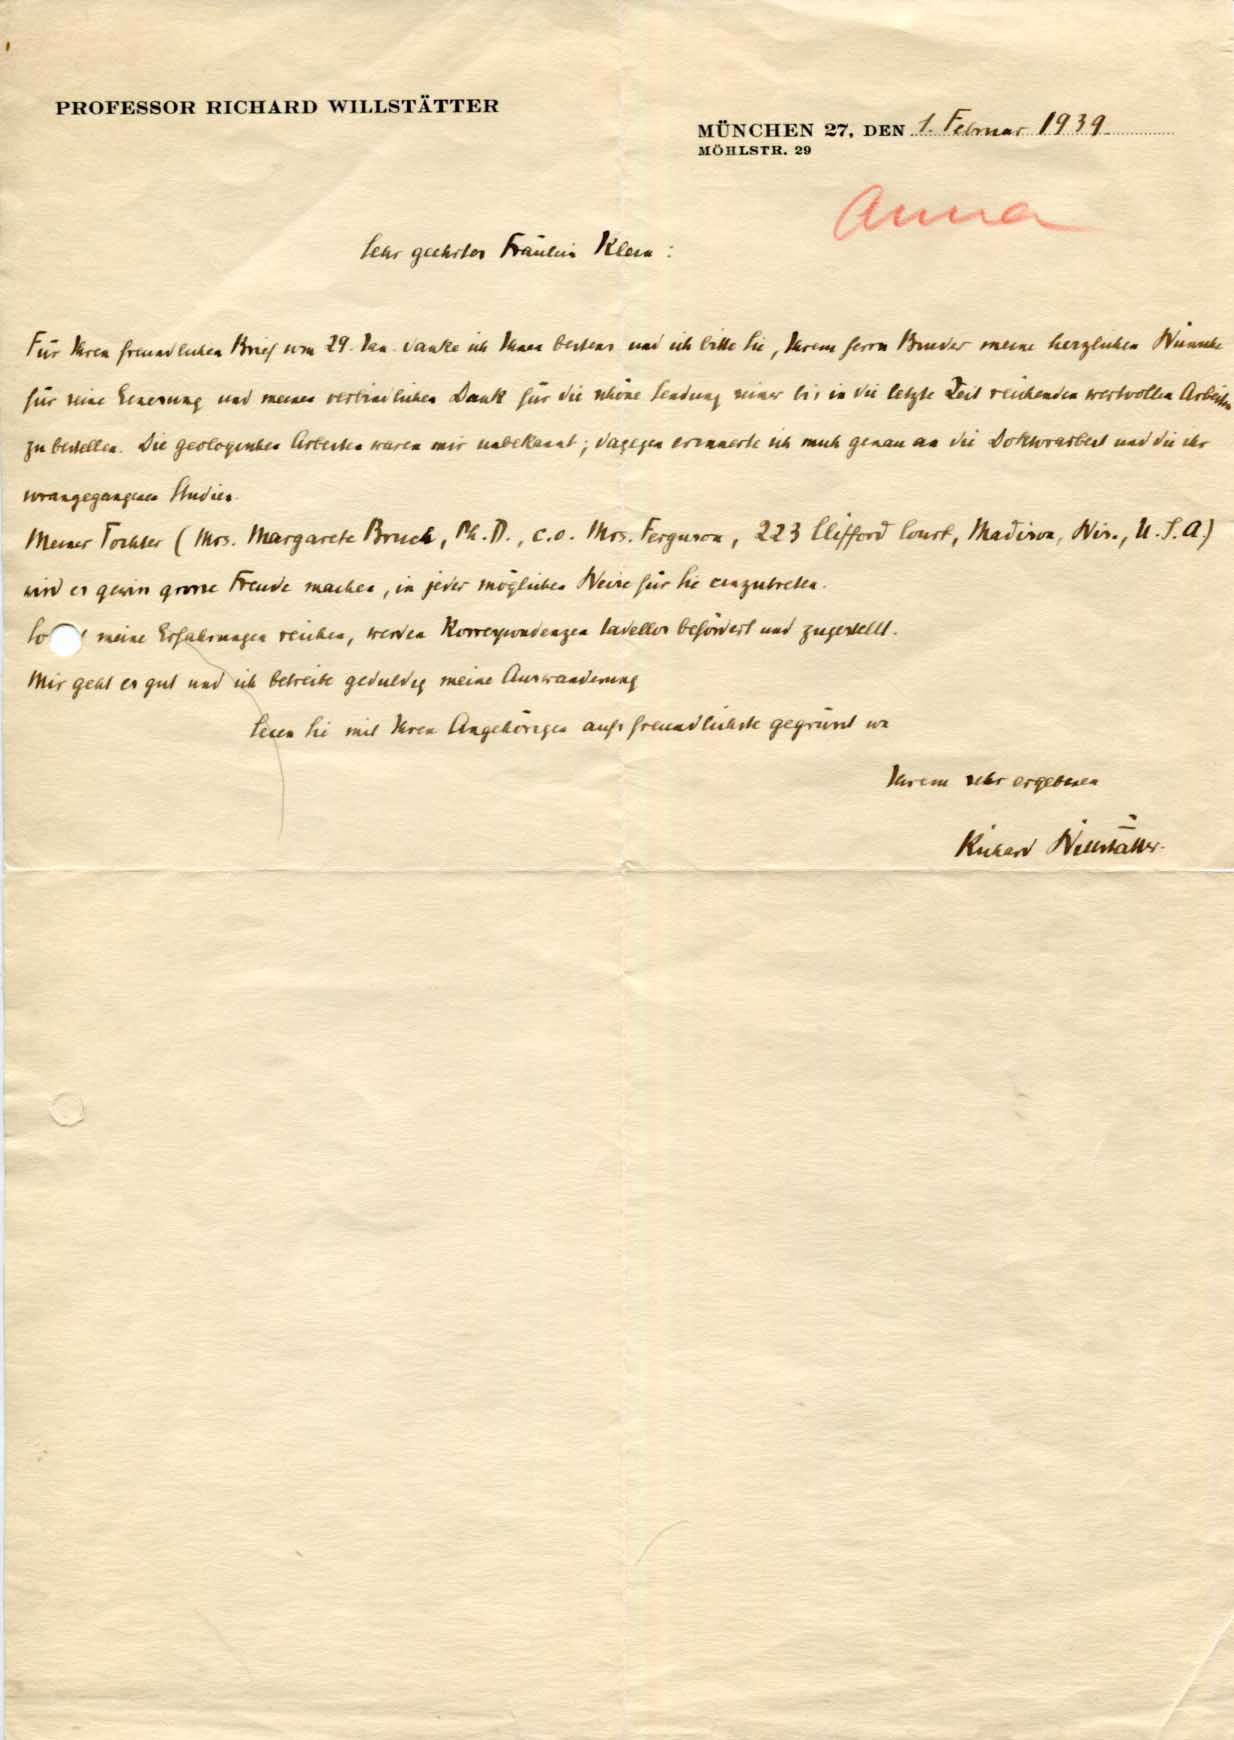 PROFESSOR RICHARD WILLSTÄTTER
MÜNCHEN 27, DEN 1. Februar 1939
MÖHLSTR. 29
Anna
Sehr geehrtes Fräulein Klein:
Für Ihren freundlichen Brief vom 29. Jan. danke ich Ihnen bestens und ich bitte Sie, Ihrem Herrn Bruder meine herzlichen Wünsche
für seine Genesung und meinen verbindlichen Dank für die schöne Sendung seiner bis in die letzte Zeit reichenden wertvollen Arbeiten
zu bestellen. Die geologischen Arbeiten waren mir unbekannt; dagegen erinnerte ich mich genau an die Doktorarbeit und die ihr
vorangegangenen Studien.
Meiner Tochter (Mrs. Margarete Bruch, Ph. D., c.o. Mrs. Ferguson, 223 Clifford Court, Madison, Wis., U.S.A.)
wird es gewiss grosse Freude machen, in jeder möglichen Weise für Sie einzutreten.
meine Erfahrungen reichen, werden Korrespondenzen tadellos befördert und zugestellt.
Mir geht es gut und ich betreibe geduldig meine Auswanderung
Seien Sie mit Ihren Angehörigen aufs freundlichste gegrüsst von
Ihrem sehr ergebenen
Richard Willstätter.